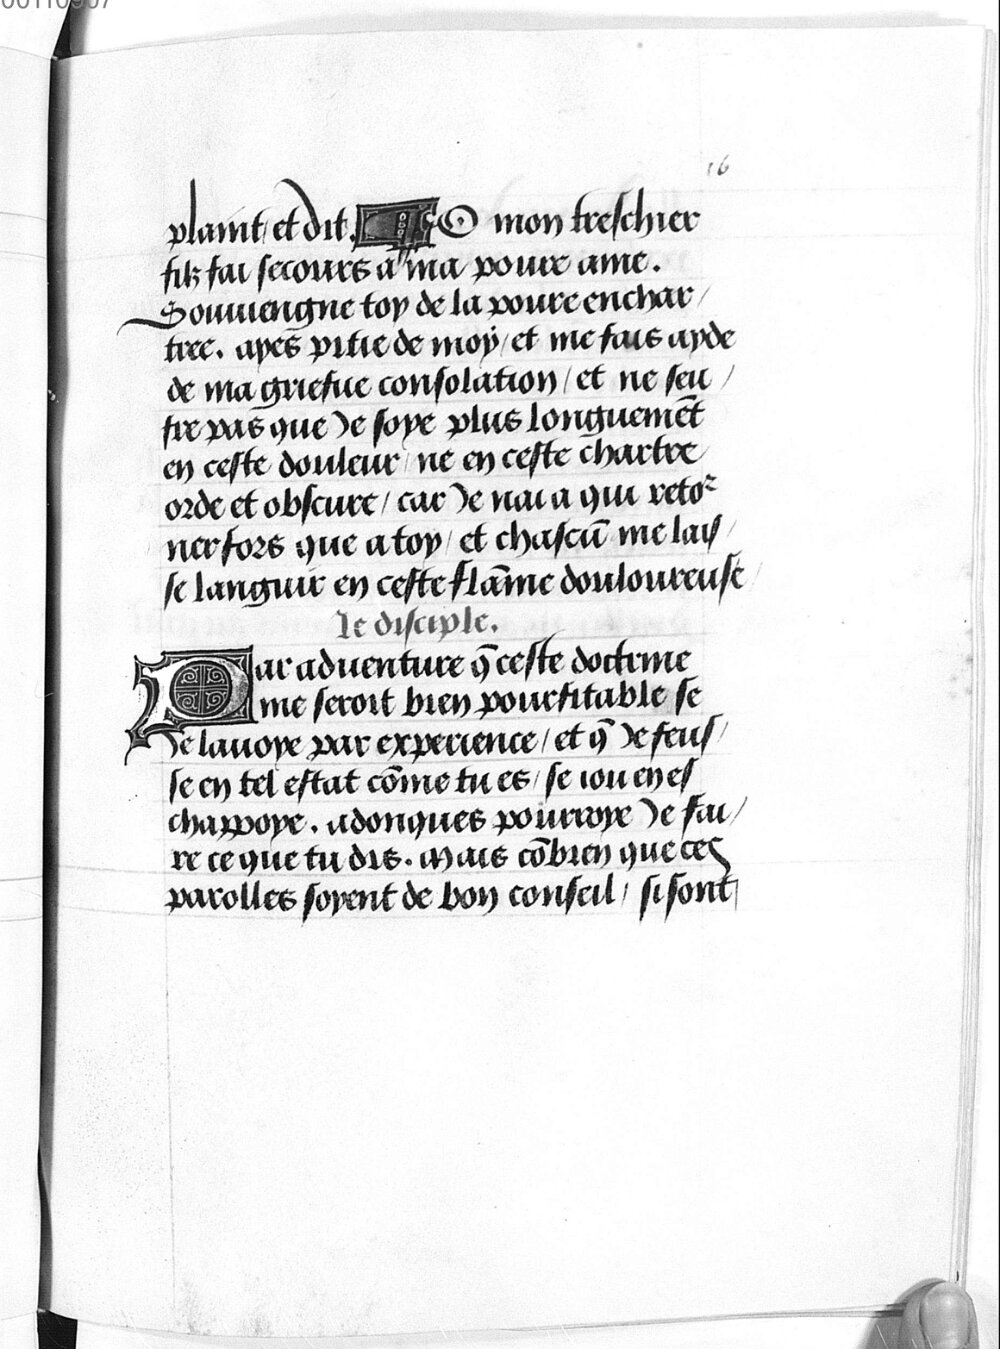 16
plaint et dit. O mon treschier
filz fai secours a ma poure ame.
Souuiengne toy de la poure enchar/
tree. ayes pitie de moy/ et me fais ayde
de ma griefue consolation/ et ne seu/
fre pas que Je soye plus longuemēt
en ceste douleur/ ne en ceste chartre
orde et obscure/ car Je nai a qui reto²
ner fors que a toy/ et chascū me lais/
se languir en ceste flāme douloureuse/
le disciple.
Par aduenture q̄ ceste doctrine
me seroit bien pourfitable se
Je lauoye par experience/ et q̄ Je feus/
se en tel estat cōme tu es/ se iou en es
chappoye. adonques pourroye Je fai/
re ce que tu dis. Mais cōbien que ces
parolles soyent de bon conseil/ si sont